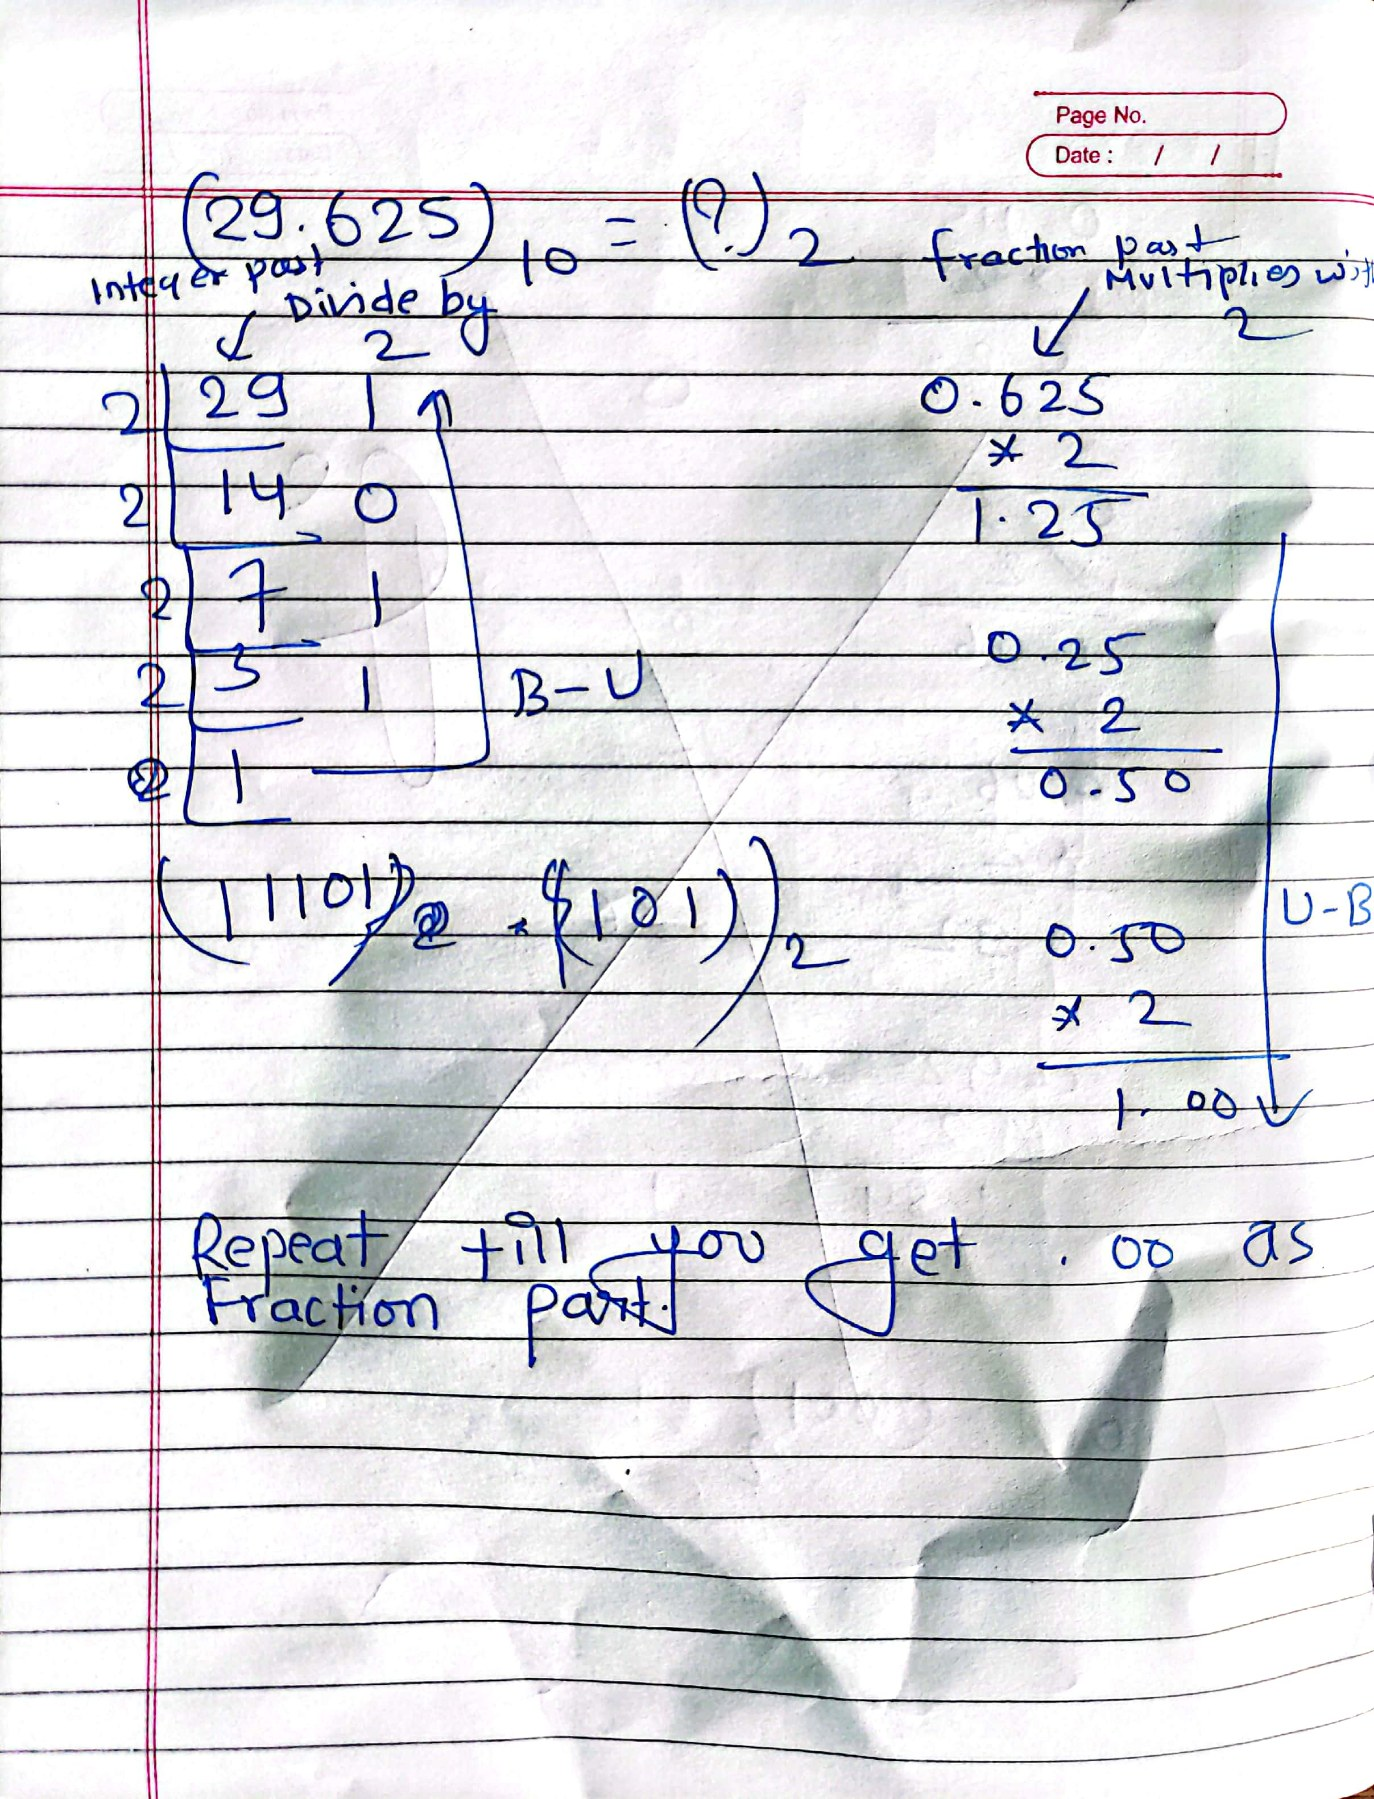 Page No.
Date : / /
(29.625)10 = (?)2
Integer part
Divide by
2
2 29 1
2 14 0
2 7 1
2 3 1
1
B-U
fraction part
Multiplies
2
0.625
* 2
1.25
0.25
* 2
0.50
0.50
* 2
1.00
U-B
(11101)2 . (101))2
Repeat till you get .00 as
Fraction part.